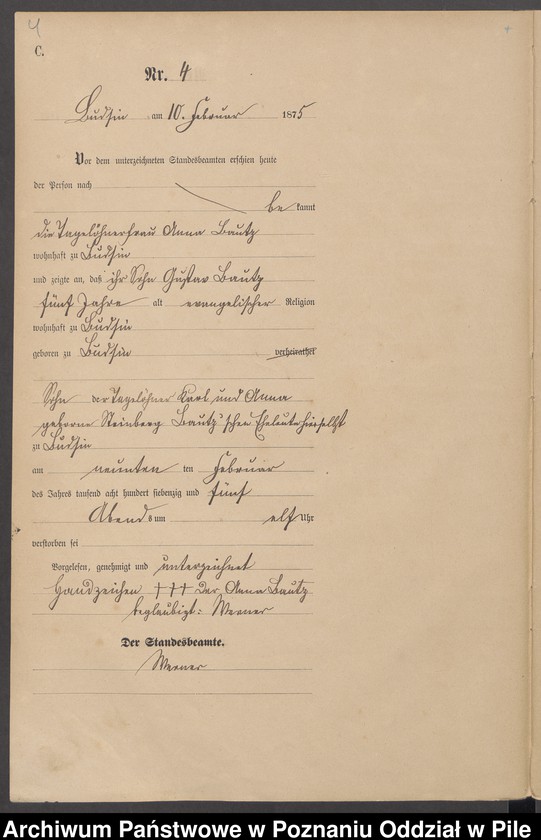 4
C.
Nr. 4
Budsin am 10. Februar 1875
Vor dem unterzeichneten Standesbeamten erschien heute
der Person nach
be kannt
die Tagelöhnerfrau Anna Bautz
wohnhaft zu Budsin
und zeigte an, daß ihr Sohn Gustav Bautz
fünf Jahre alt evangelischer Religion
wohnhaft zu Budsin
geboren zu Budsin verheirathet
Sohn der Tagelöhner Karl und Anna
geborne Steinberg Bautz'schen Eheleute hierselbst
zu Budsin
am neunten ten Februar
des Jahres tausend acht hundert siebenzig und fünf
Abends um elf Uhr
verstorben sei
Vorgelesen, genehmigt und unterzeichnet
Handzeichen +++ der Anna Bautz
beglaubigt: Werner
Der Standesbeamte.
Werner
Archiwum Państwowe w Poznaniu Oddział w Pile